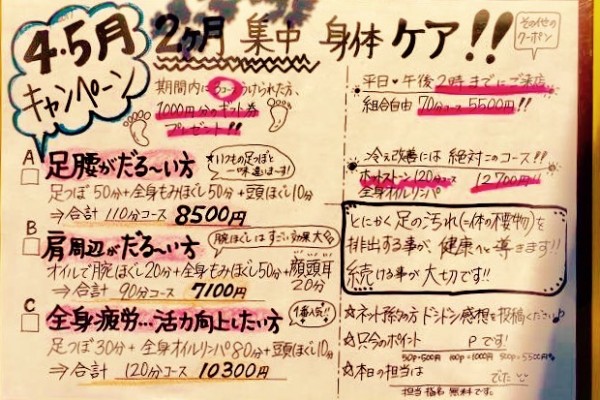 4・5月
キャンペーン
2ヶ月 集中 身体 ケア!!
その他の
クーポン
期間内に3コースうけられた方、
1000円分のギフト券
プレゼント!!
A
足腰がだる〜い方
★いつもの足つぼと
一味違いま〜す!
足つぼ50分+全身もみほぐし50分+頭ほぐし10分
⇒合計 110分コース 8500円
B
肩周辺がだる〜い方
腕ほぐしはすごい効果大
オイルで腕ほぐし20分+全身もみほぐし50分+顔頭耳
20分
⇒合計 90分コース 7100円
C
全身疲労…活力向上したい方
1番人気!!
足つぼ30分+全身オイルリンパ80分+頭ほぐし10分
⇒合計 120分コース 10300円
平日♥午後2時までにご来店
組合自由 70分コース 5500円!!
冷え改善には絶対このコース!!
ホットストーン120分コース 12700円!!
全身オイルリンパ
とにかく足の汚れ(=体の老廃物)を
排出する事が、健康へと導きます!!
続ける事が大切です!!
☆ネット予約の方 ドンドン感想を投稿ください♪
☆只今のポイント P です!
50P=500円 100P=1000円 500P=5500円
☆本日の担当は でした
担当指名 無料です。